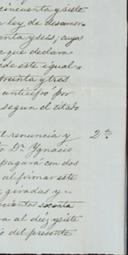 cincuenta y siete
a ley de desamor
enta y seis, cuyo
e que declara
ede este igual
treinta y tres
anticipo por
segun el citado
el renuncia y 2ª
o Dn Ygnacio
pagará con dos
al firmar este
giradas y
cuenta
a al diez y siete
o del presente